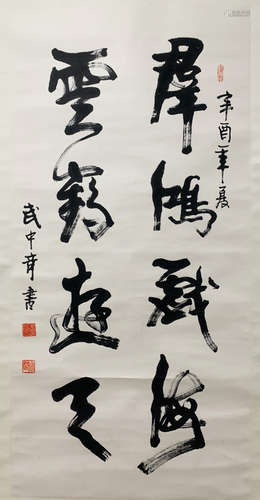 辛酉年夏
羣鴻戲海
雲鶴遊天
武中奇書